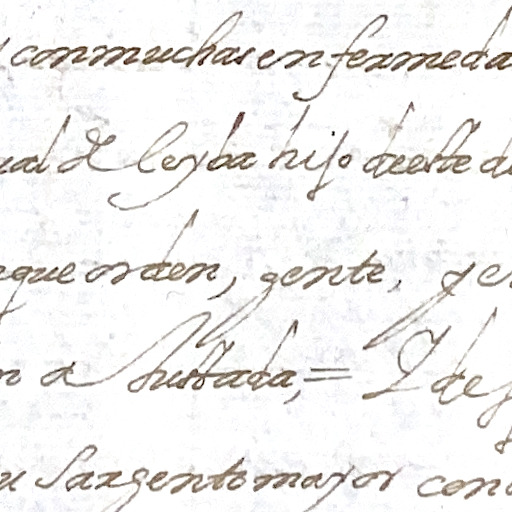 con muchas enfermeda
de leyba hijo de este
que orden, gente, y
a Justada, = Y de
Sargento mayor con